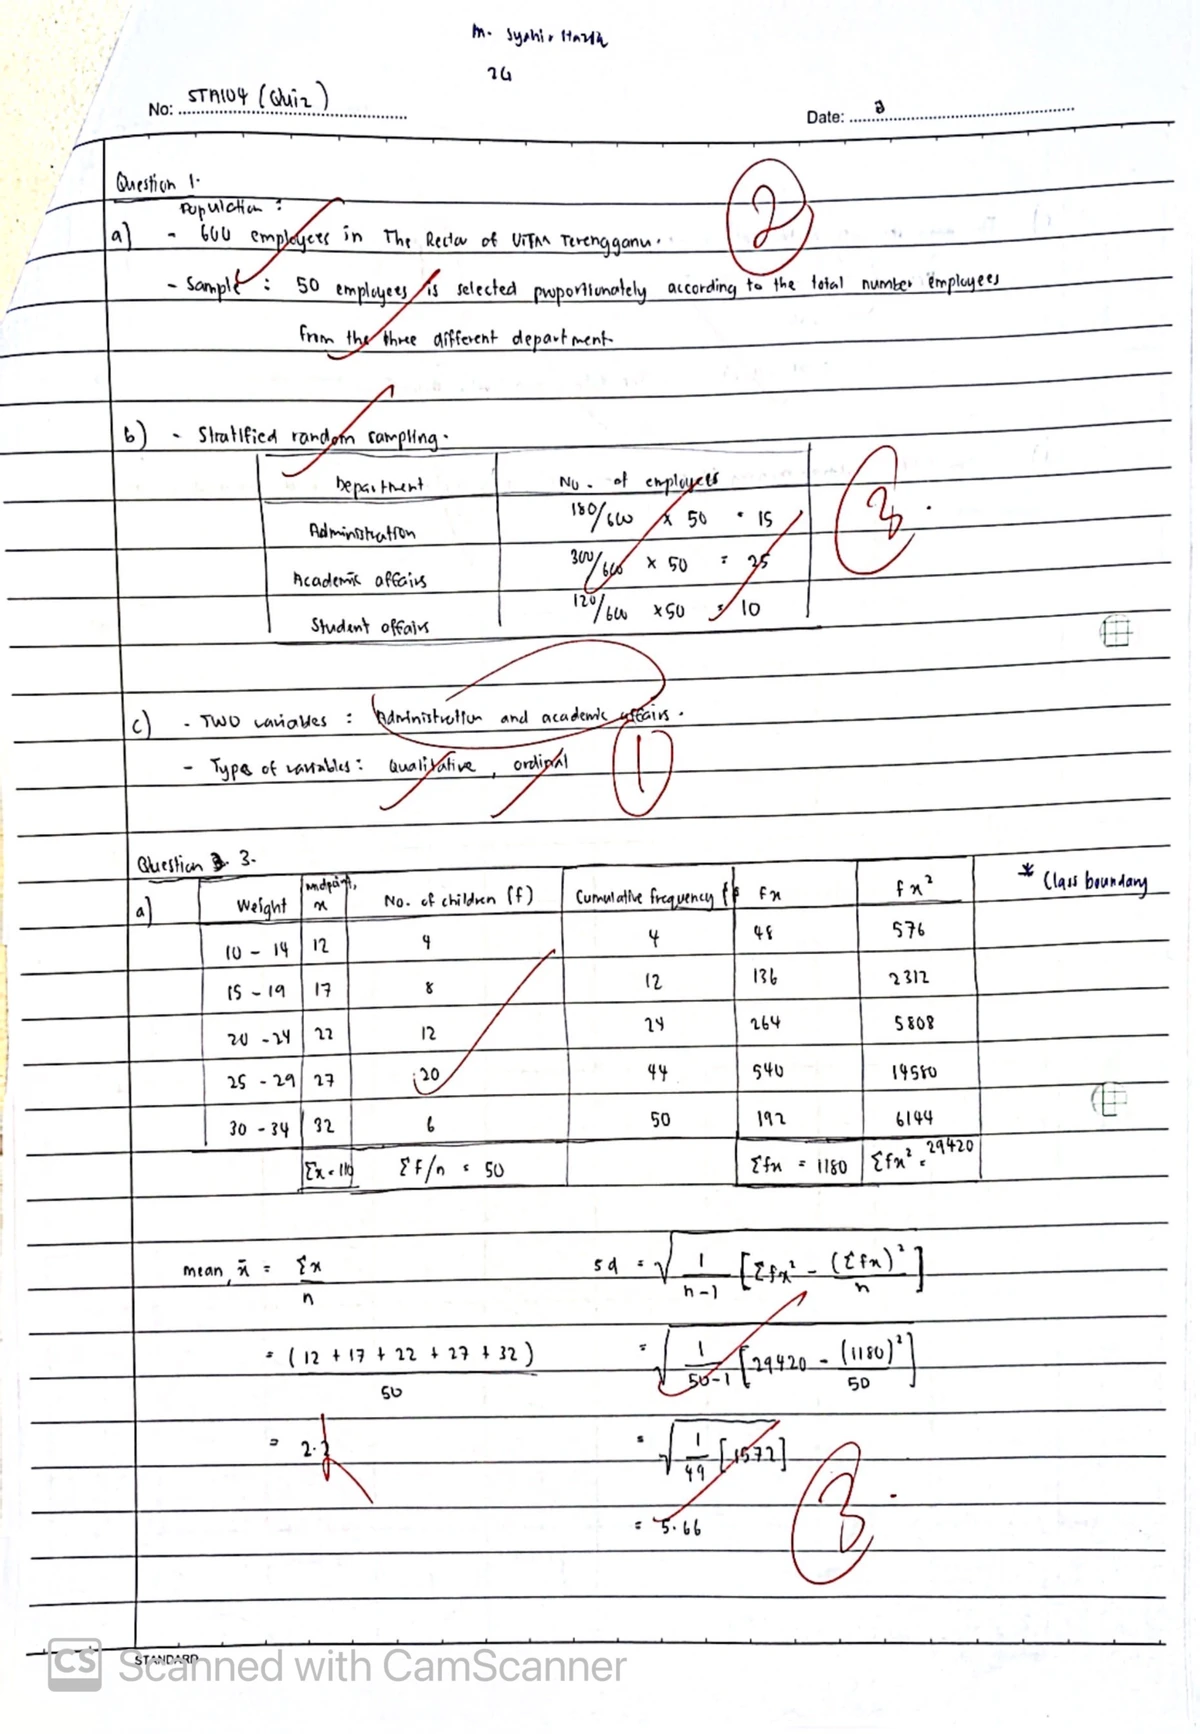 M. Syahir
2G
No: STA104 (Quiz)
Date:
Question 1.
Population :
a) - 600 employees in The Rector of UiTM Terengganu.
2
- Sample : 50 employees is selected proportionately according to the total number employees
from the three different department
b) - Stratified random sampling.
Department No. of employees
Administration 180/600 x 50 = 15
3
Academic affairs 300/600 x 50 = 25
Student affairs 120/600 x 50 = 10
c) - TWO variables : Administration and academic affairs.
- Types of variables : Qualitative, ordinal
1
Question 3.
* Class boundary
a) Weight midpoint, x No. of children (f) Cumulative frequency fx fx²
10 - 14 12 4 4 48 576
15 - 19 17 8 12 136 2312
20 - 24 22 12 24 264 5808
25 - 29 27 20 44 540 14580
30 - 34 32 6 50 192 6144
Σx = 110 Σf/n = 50 Σfx = 1180 Σfx² = 29420
mean, x̄ = Σx / n
sd = √ 1/(n-1) [Σfx² - (Σfx)²/n]
= (12 + 17 + 22 + 27 + 32) / 50
= √ 1/(50-1) [29420 - (1180)²/50]
= 2.2
= √ 1/49 [1572]
= 5.66
3
STANDARD
CS Scanned with CamScanner